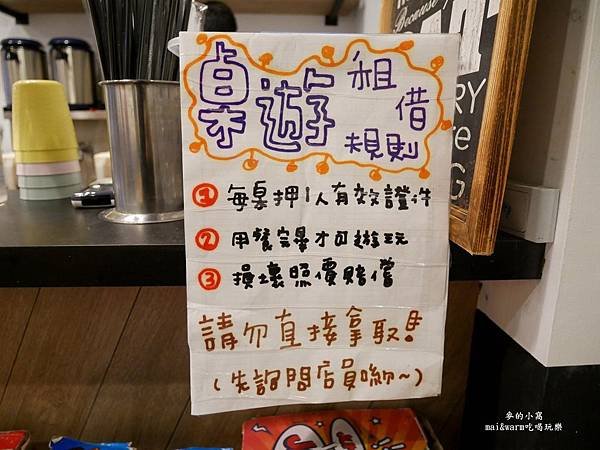 桌遊
租借
規則
① 每桌押1人有效證件
② 用餐完畢才可遊玩
③ 損壞照價賠償
請勿直接拿取!!
(先詢問店員喲~)
Because
RY
G
麥的小窩
mai&warm吃喝玩樂